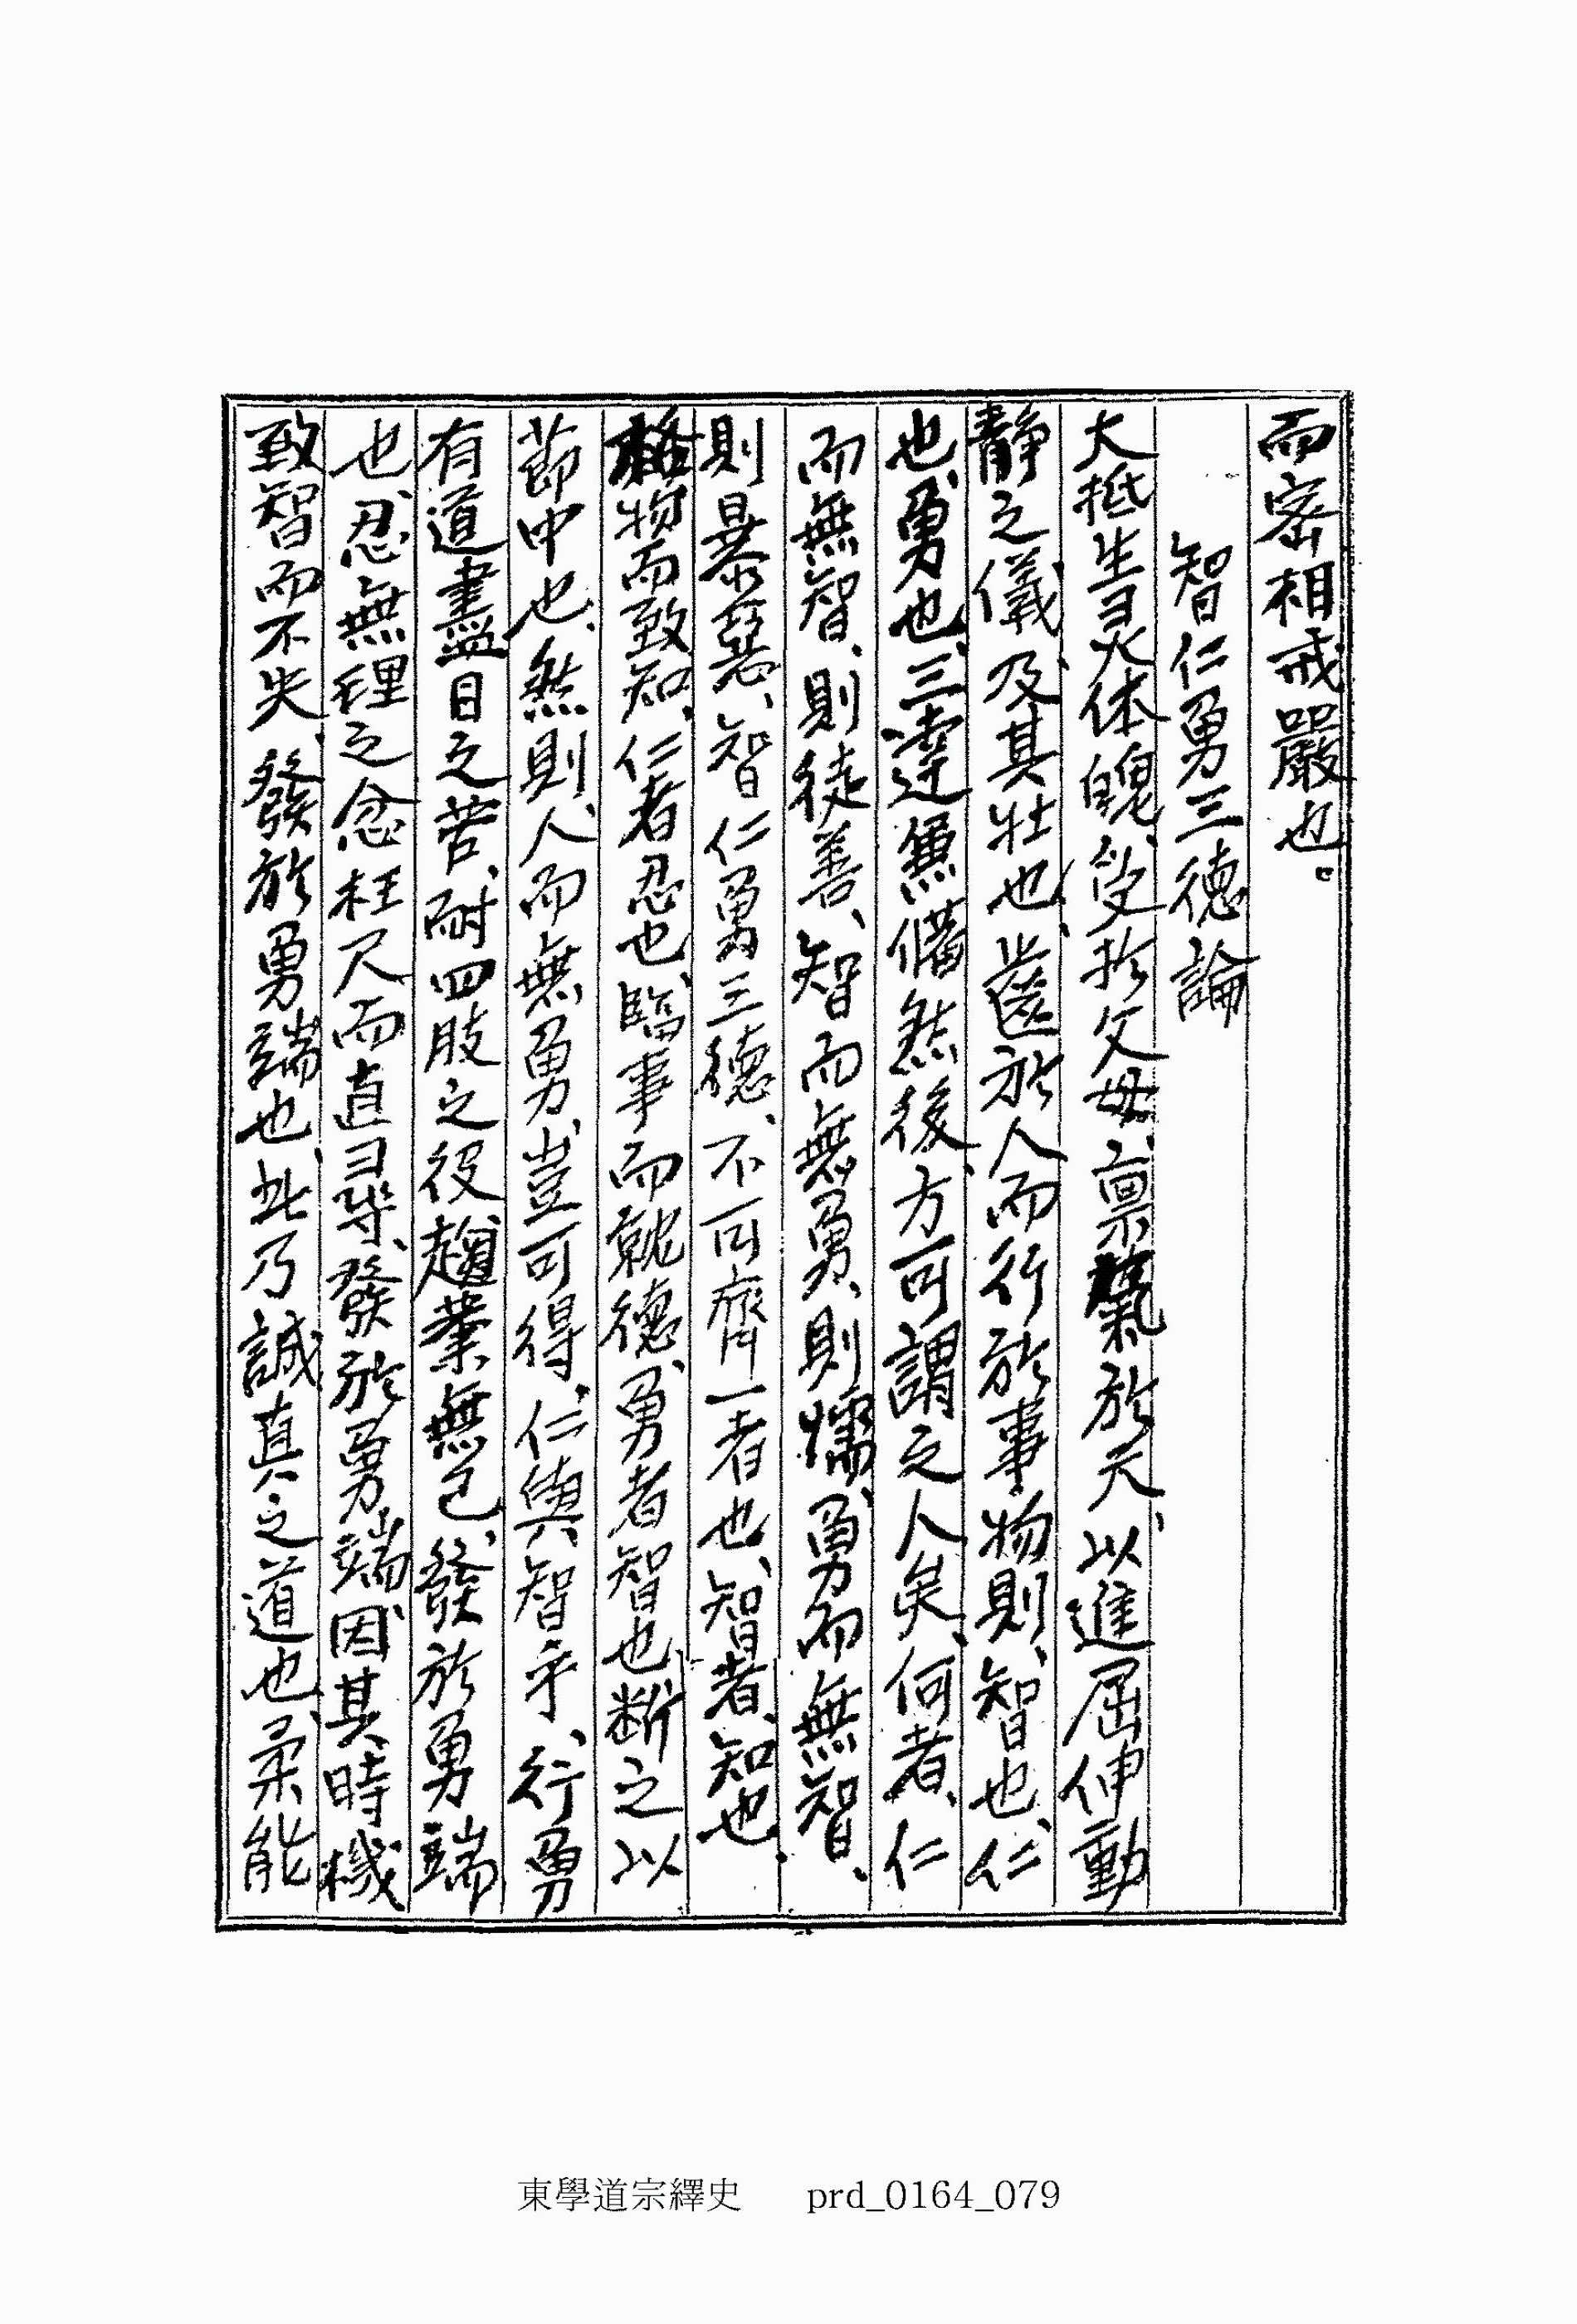 而密相戒嚴也。
智仁勇三德論
大抵生灵体魄、受扵父母、禀氣於天、以進屈伸動
靜之儀、及其壯也、齒於人而行於事物則、智也、仁
也、勇也、三達兼備然後、方可謂之人矣、何者、仁
而無智、則徒善、智而無勇、則懦、勇而無智、
則暴惡、智仁勇三德、不可齊一者也、智者、知也、
格物而致知、仁者忍也、臨事而就德、勇者智也、断之以
節中也、然則、人而無勇、豈可得、仁與智乎、行勇
有道盡目之苦、耐四肢之役、趨業無已、發於勇端
也、忍無理之忿、枉尺而直尋、發於勇端、因其時機、
致智而不失、發於勇端也、此乃誠真之道也、柔能
東學道宗繹史 prd_0164_079